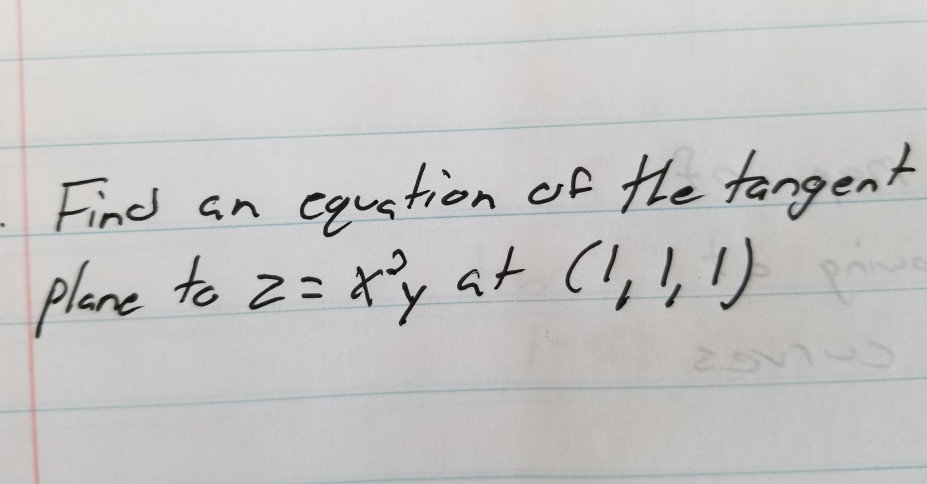 . Find an equation of the tangent
plane to z = x²y at (1, 1, 1)
curves